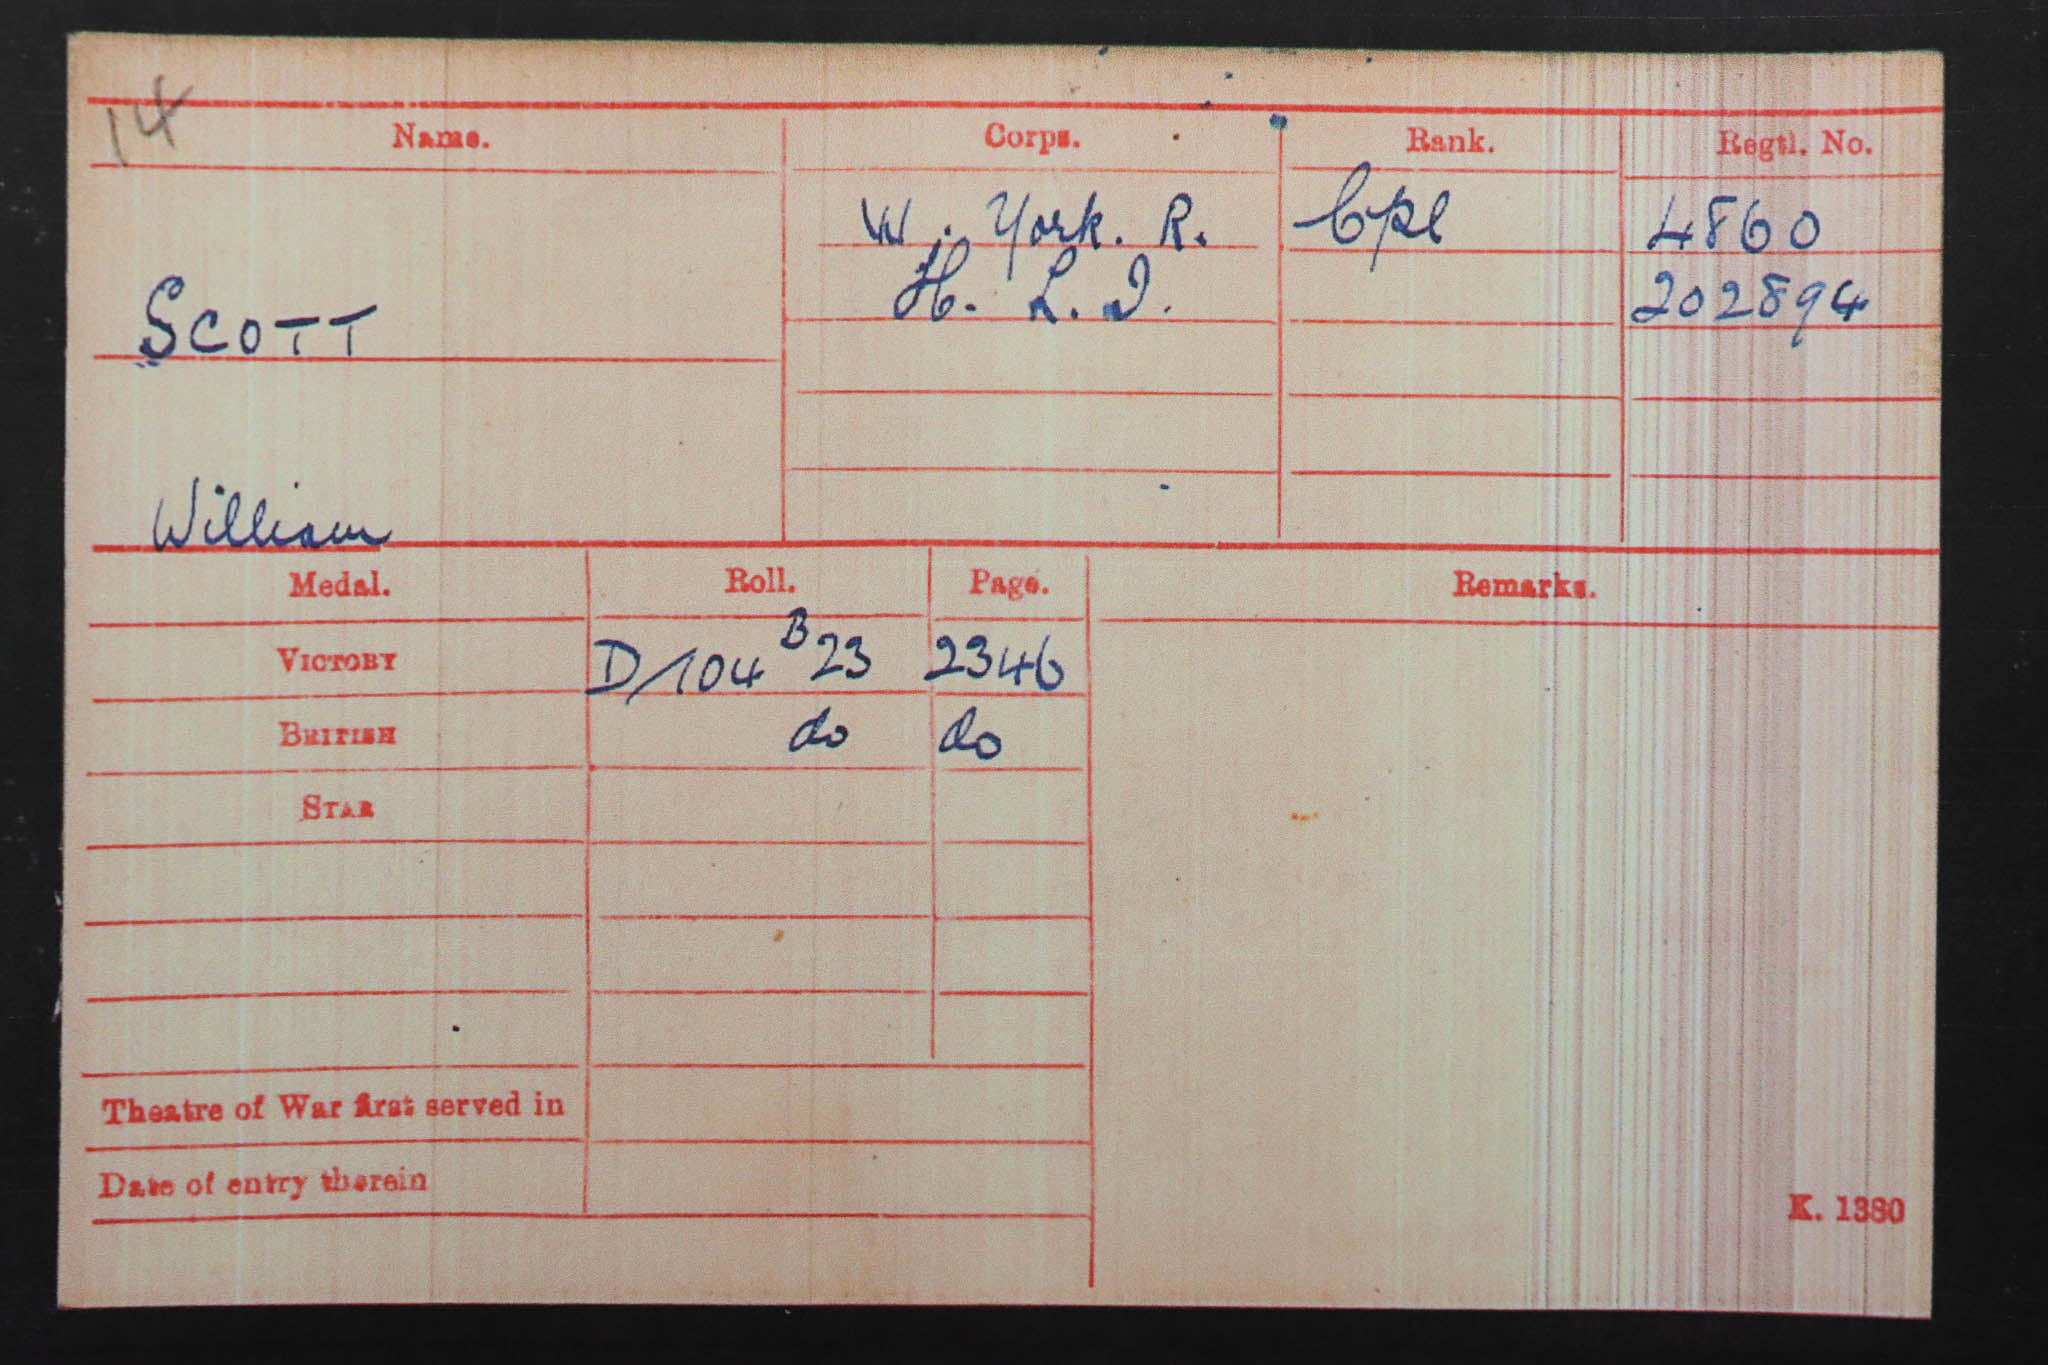 14
Name. Corps. Rank. Regtl. No.
W. York. R. Cpl 4860
H. L. I. 202894
SCOTT
William
Medal. Roll. Page. Remarks.
VICTORY D/104 B23 2346
BRITISH do do
STAR
Theatre of War first served in
Date of entry therein
K. 1380